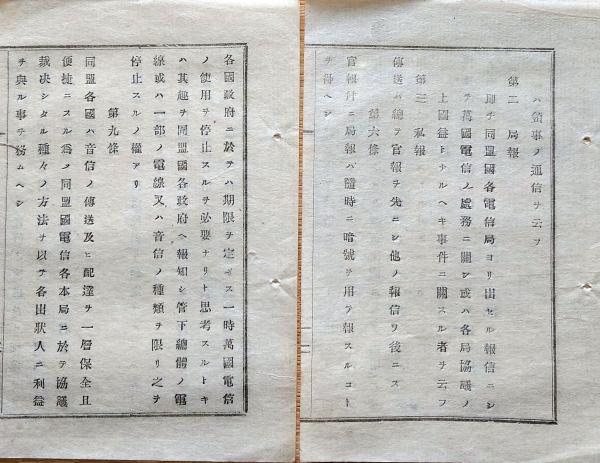 ハ領事ノ通信ヲ云フ
第二 局報
即チ同盟國各電信局ヨリ出セル報信ニシ
テ萬國電信ノ處務ニ關シ或ハ各局協議ノ
上國益トナルヘキ事件ニ關スル者ヲ云フ
第三 私報
傳送ハ總テ官報ヲ先ニシ他ノ報信ヲ後ニス
第六條
官報幷ニ局報ハ隨時ニ暗號ヲ用テ報スルコト
ヲ得ヘシ
各國政府ニ於テハ期限ヲ定メス一時萬國電信
ノ使用ヲ停止スルヲ必要ナリト思考スルトキ
ハ其趣ヲ同盟國各政府ヘ報知シ管下總體ノ電
線或ハ一部ノ電線又ハ音信ノ種類ヲ限リ之ヲ
停止スルノ權アリ
第九條
同盟各國ハ音信ノ傳送及ヒ配達ヲ一層保全且
便捷ニスル爲メ同盟國電信各本局ニ於テ協議
裁决シタル種々ノ方法ヲ以テ各出狀人ニ利益
ヲ與ル事ヲ務ムヘシ